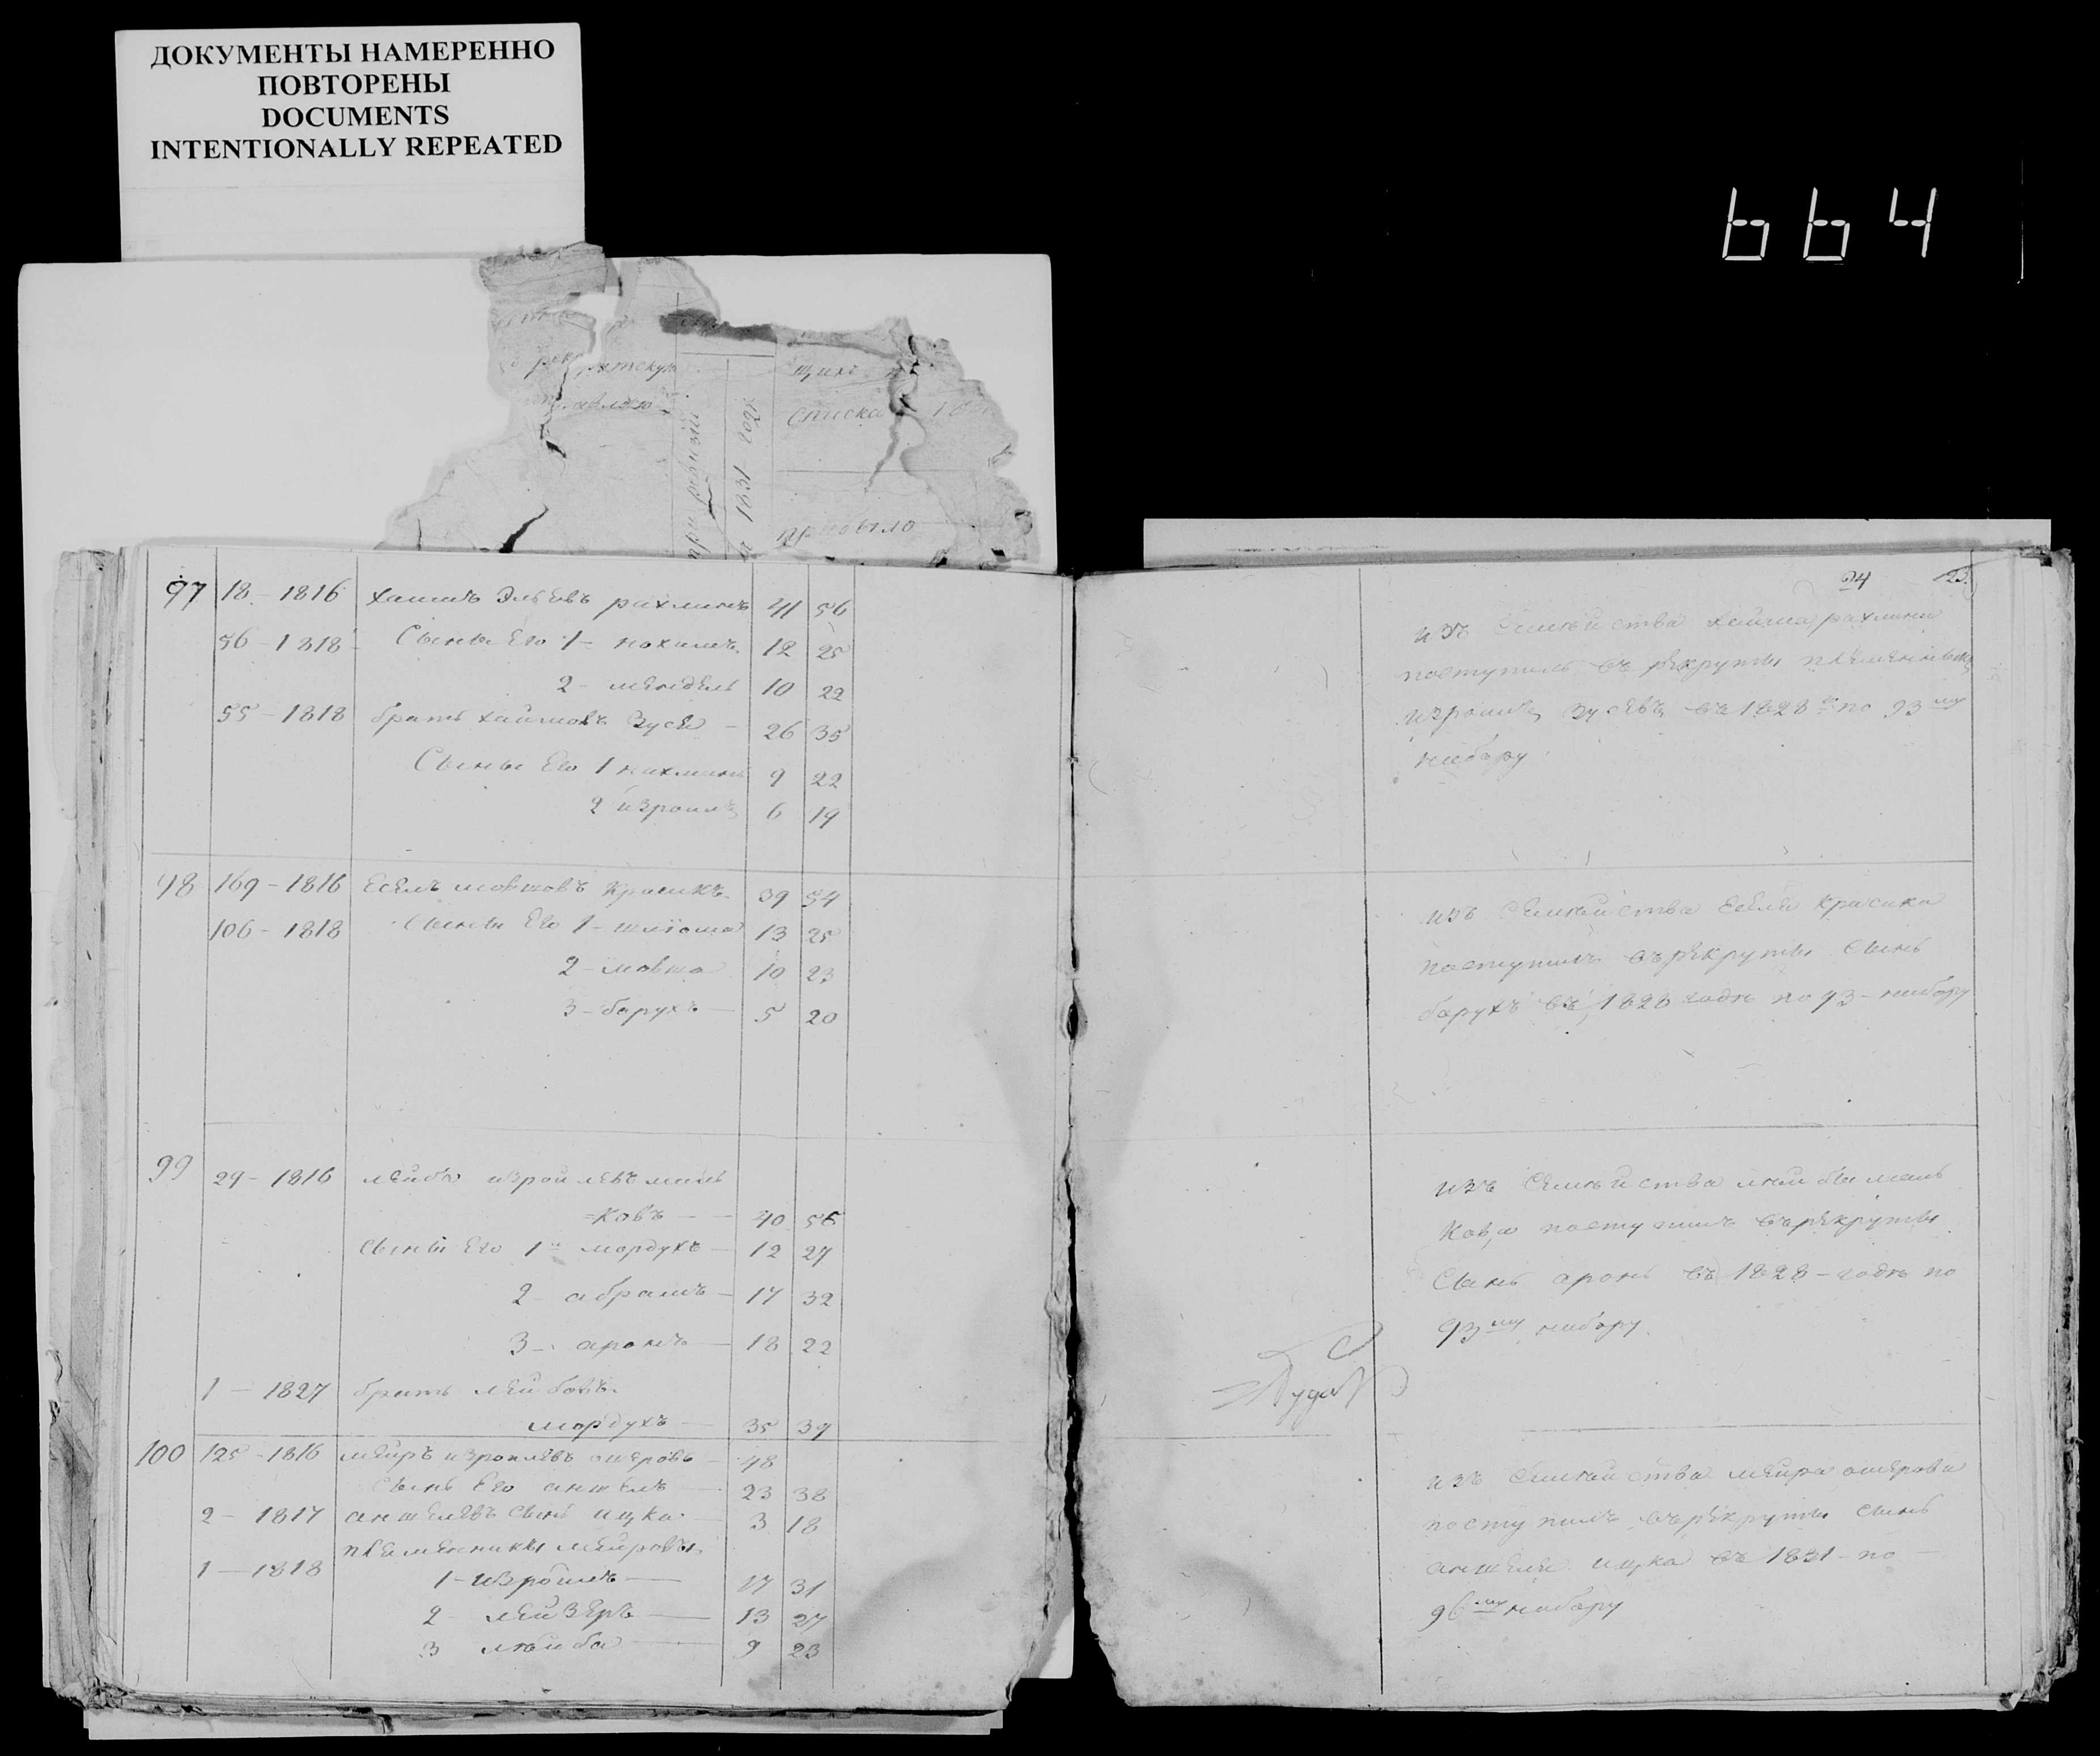 ДОКУМЕНТЫ НАМЕРЕННО
ПОВТОРЕНЫ
DOCUMENTS
INTENTIONALLY REPEATED
664
списка
1831
прибыло
24
97 18 - 1816 хаимъ Эльевъ рахлинъ 41 56
56 - 1818 Сыны Его 1 - нохимъ 12 25
2 - мендель 10 22
55 - 1818 братъ хаимовъ Зусь 26 35
Сыны Его 1 нахманъ 9 22
2 израиль 6 19
98 169 - 1816 Есель мовшовъ Красикъ 39 54
106 - 1818 Сыны Его 1 - шліома 13 25
2 - мовша 10 23
3 - барухъ 5 20
99 29 - 1816 лейба израилевъ мань
=ковъ 40 56
Сыны Его 1й мордухъ 12 27
2 - абрамъ 17 32
3 - аронъ 18 22
1 - 1827 братъ лейбовъ
мордухъ 35 39
100 125 - 1816 меиръ израилевъ ошеровъ 48
сынъ Его аншель 23 38
2 - 1817 аншелевъ сынъ ицка 3 18
племянники меировы
1 - 1818 1 - израиль 17 31
2 - лейзеръ 13 27
3 лейба 9 23
изъ Семейства хайма рахлина
поступилъ въ рекруты племянникъ
израиль зусевъ въ 1828 по 93му
набору
изъ Семейства Еселя красика
поступилъ въ рекруты Сынъ
барухъ въ 1828 годъ по 93 - набору
изъ Семейства лейбы мань
кова поступилъ въ рекруты
Сынъ аронъ въ 1828 - годъ по
93му набору
изъ Семейства меира ошерова
поступилъ въ рекруты сынъ
аншеля ицка въ 1831 - по
96му набору